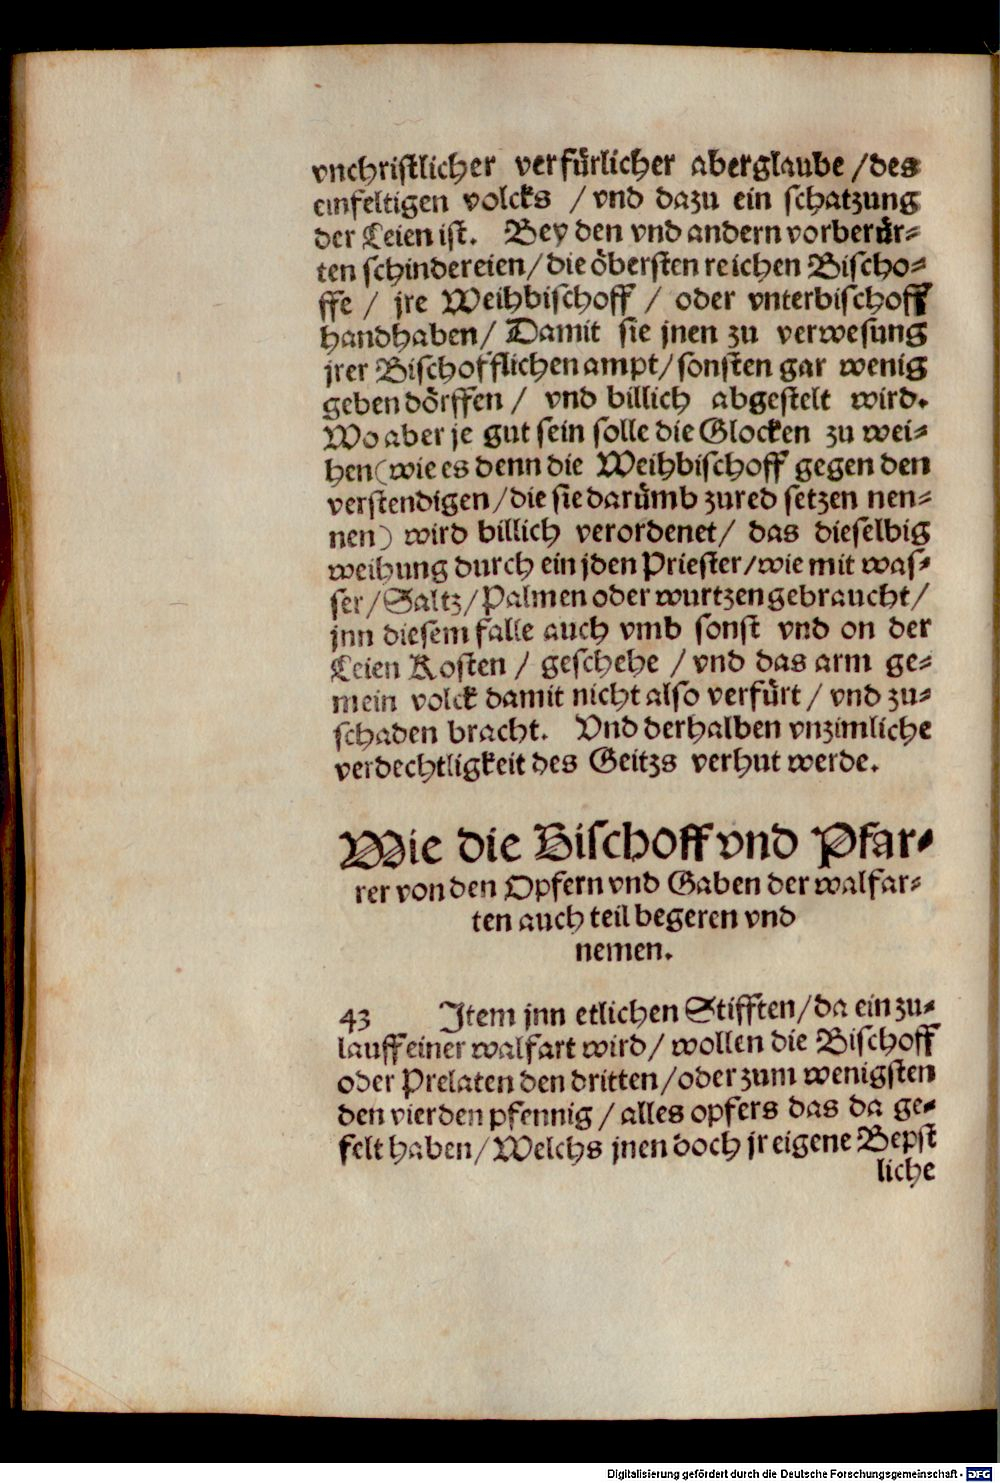 vnchristlicher verfürlicher aberglaube /des
einfeltigen volcks / vnd dazu ein schatzung
der Leien ist. Bey den vnd andern vorberür⸗
ten schindereien/ die öbersten reichen Bischo⸗
ffe / jre Weihbischoff / oder vnterbischoff
handhaben/ Damit sie jnen zu verwesung
jrer Bischofflichen ampt/ sonsten gar wenig
geben dörffen / vnd billich abgestelt wird.
Wo aber je gut sein solle die Glocken zu wei⸗
hen (wie es denn die Weihbischoff gegen den
verstendigen /die sie darümb zured setzen nen⸗
nen) wird billich verordenet/ das dieselbig
weihung durch ein jden Priester/wie mit was⸗
ser/Saltz/Palmen oder wurtzen gebraucht/
jnn diesem falle auch vmb sonst vnd on der
Leien Kosten / geschehe / vnd das arm ge⸗
mein volck damit nicht also verfürt / vnd zu⸗
schaden bracht. Vnd derhalben vnzimliche
verdechtligkeit des Geitzs verhut werde.
Wie die Bischoff vnd Pfar⸗
rer von den Opfern vnd Gaben der walfar⸗
ten auch teil begeren vnd
nemen.
43 Item jnn etlichen Stifften/da ein zu⸗
lauff einer walfart wird/ wollen die Bischoff
oder Prelaten den dritten/oder zum wenigsten
den vierden pfennig / alles opfers das da ge⸗
felt haben/ Welchs jnen doch jr eigene Bepst
liche
Digitalisierung gefördert durch die Deutsche Forschungsgemeinschaft - DFG